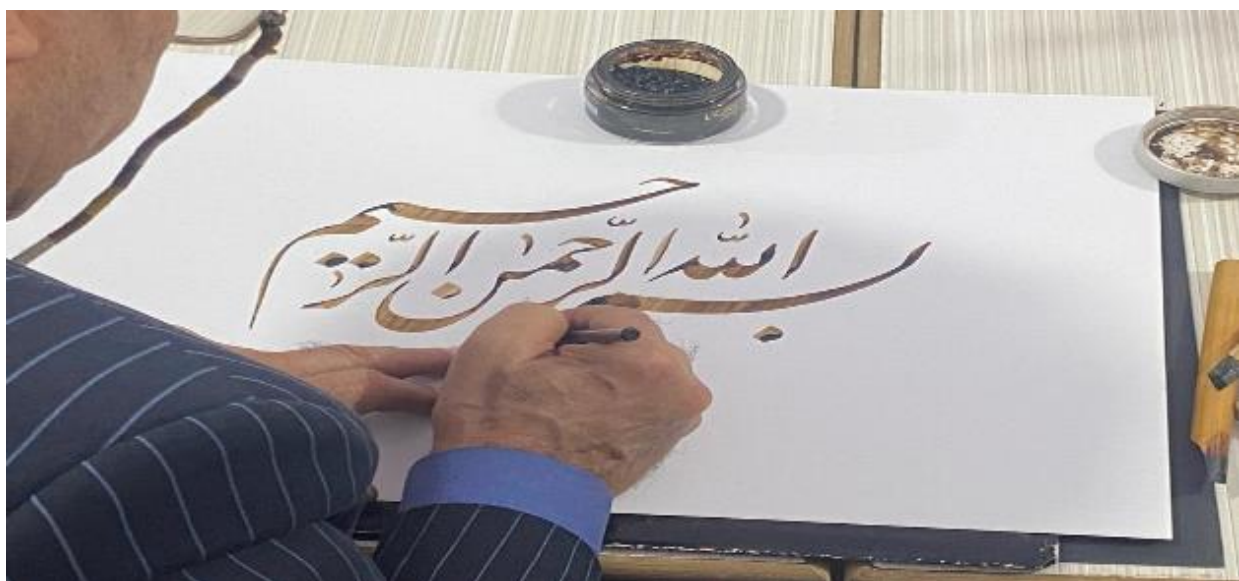 بسم الله الرّحمٰن الرّحیم